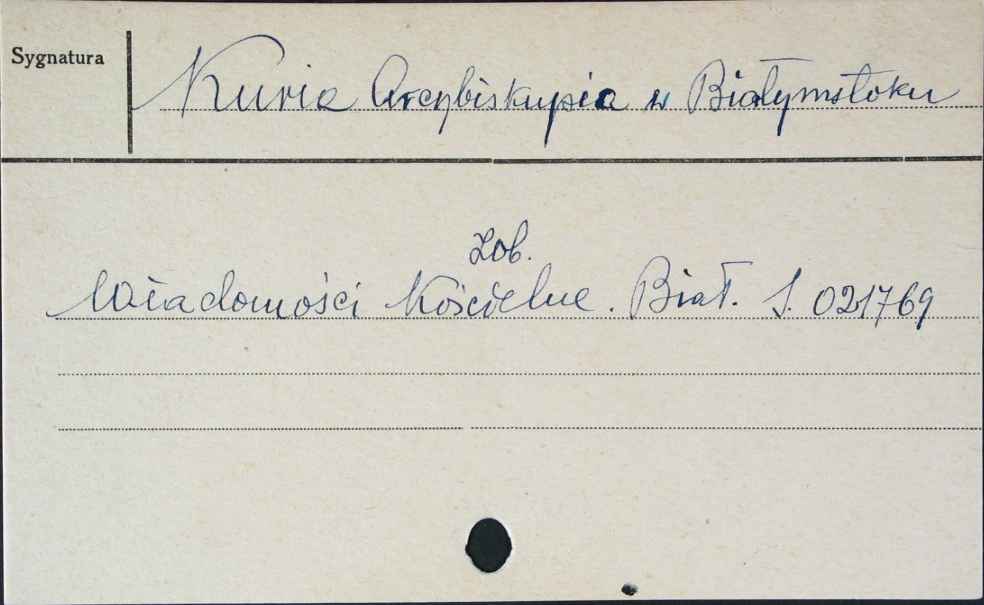 Sygnatura
Kuria Arcybiskupia w Białymstoku
Zob.
Wiadomości Kościelne. Biał. S. 021769